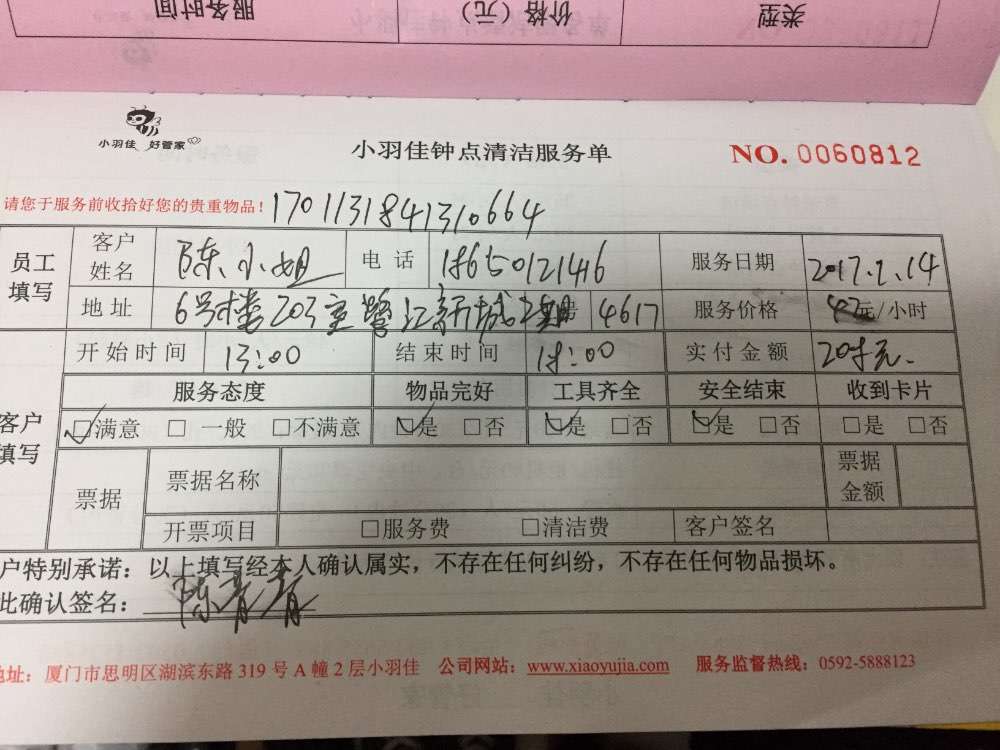 服务时间 价格（元） 类型
小羽佳 好管家
小羽佳钟点清洁服务单
NO. 0060812
请您于服务前收拾好您的贵重物品！ 1701131841310664
员工填写 客户姓名 陈小姐 电话 18650121416 服务日期 2017.2.14
地址 6号楼203室鹭江新城 4617 服务价格 元/小时
开始时间 13:00 结束时间 18:00 实付金额 208元.
服务态度 物品完好 工具齐全 安全结束 收到卡片
客户填写 ☑满意 □一般 □不满意 ☑是 □否 ☑是 □否 ☑是 □否 □是 □否
票据 票据名称 票据金额
开票项目 □服务费 □清洁费 客户签名
户特别承诺：以上填写经本人确认属实，不存在任何纠纷，不存在任何物品损坏。
此确认签名： 陈青青
地址：厦门市思明区湖滨东路 319 号 A 幢 2 层小羽佳 公司网站：www.xiaoyujia.com 服务监督热线：0592-5888123